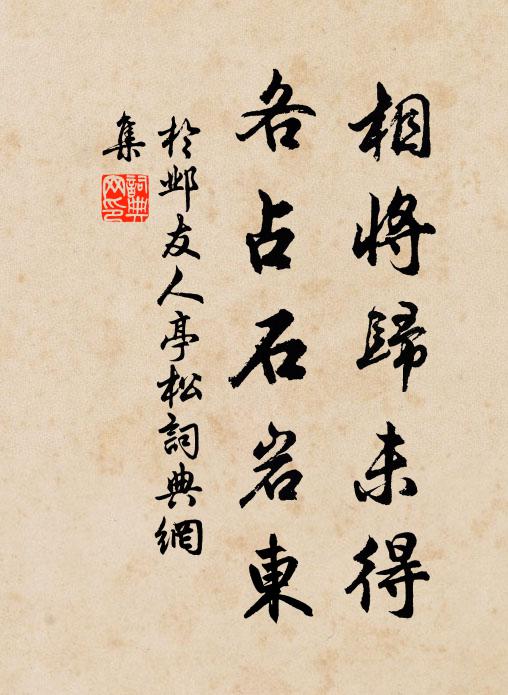 相將歸未得
各占石岩東
於鄴友人亭松詞典網
集
詞典網印